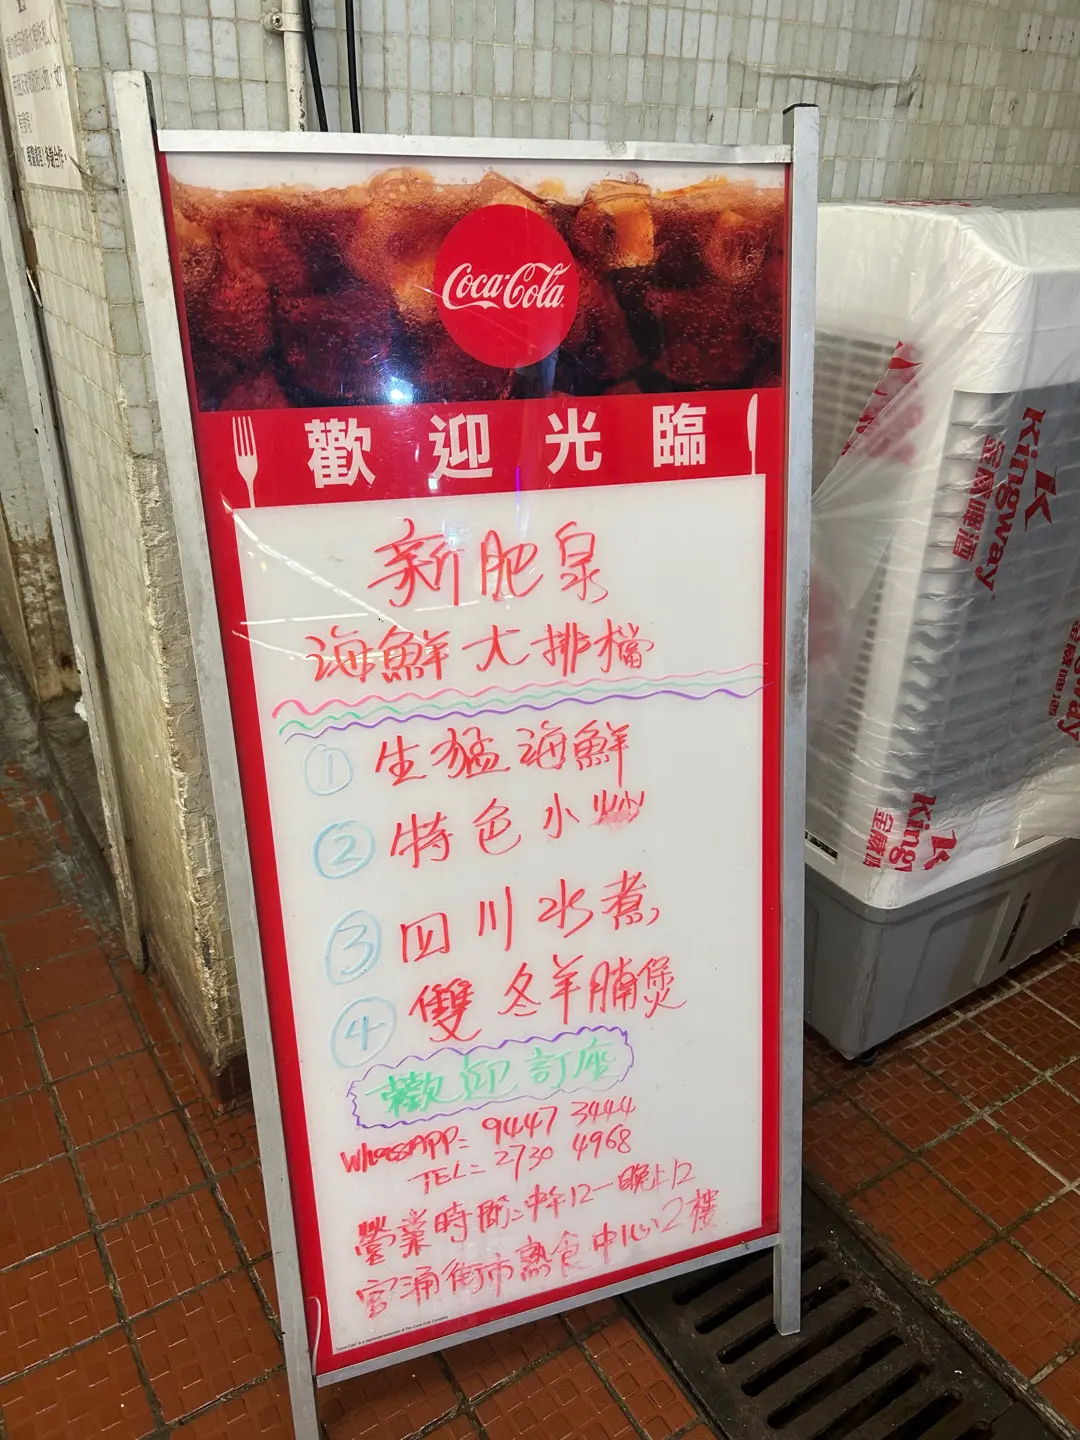 Coca-Cola
歡迎光臨
新肥泉
海鮮大排檔
① 生猛海鮮
② 特色小炒
③ 四川水煮
④ 雙冬羊腩煲
歡迎訂座
WhatsAPP= 9447 3444
TEL= 2730 4968
營業時間:中午12一晚上12
官涌街市熟食中心2樓
Kingway
金威啤酒
Kingway
金威啤酒